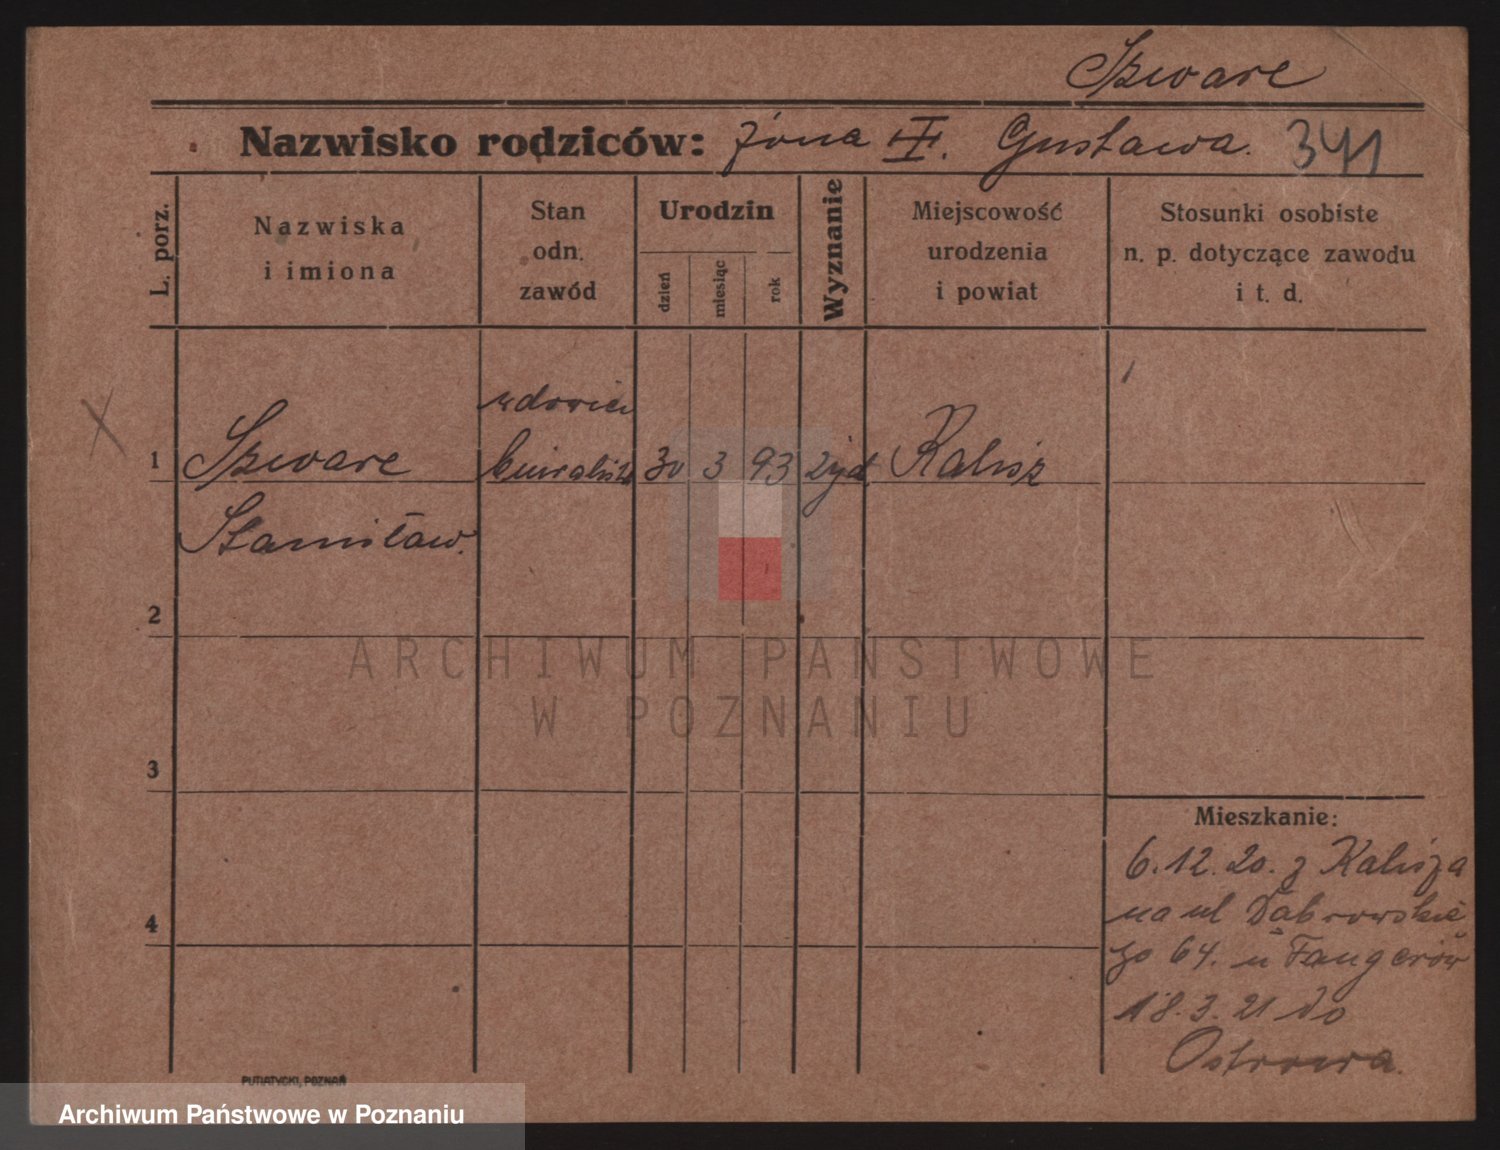 Szwarc
Nazwisko rodziców: żona III. Gustawa. 341
L. porz.
Nazwiska
i imiona
Stan
odn.
zawód
Urodzin
dzień
miesiąc
rok
Wyznanie
Miejscowość
urodzenia
i powiat
Stosunki osobiste
n. p. dotyczące zawodu
i t. d.
wdowiec
1 Szwarc biuralista 30 3 93 żyd. Kalisz
Stanisław.
2
3
4
Mieszkanie:
6.12.20. z Kalisza
na ul Dąbrowskie
go 64. u
18.3.21 do
Ostrowa.
PUTIATYCKI, POZNAŃ
ARCHIWUM PAŃSTWOWE
W POZNANIU
Archiwum Państwowe w Poznaniu